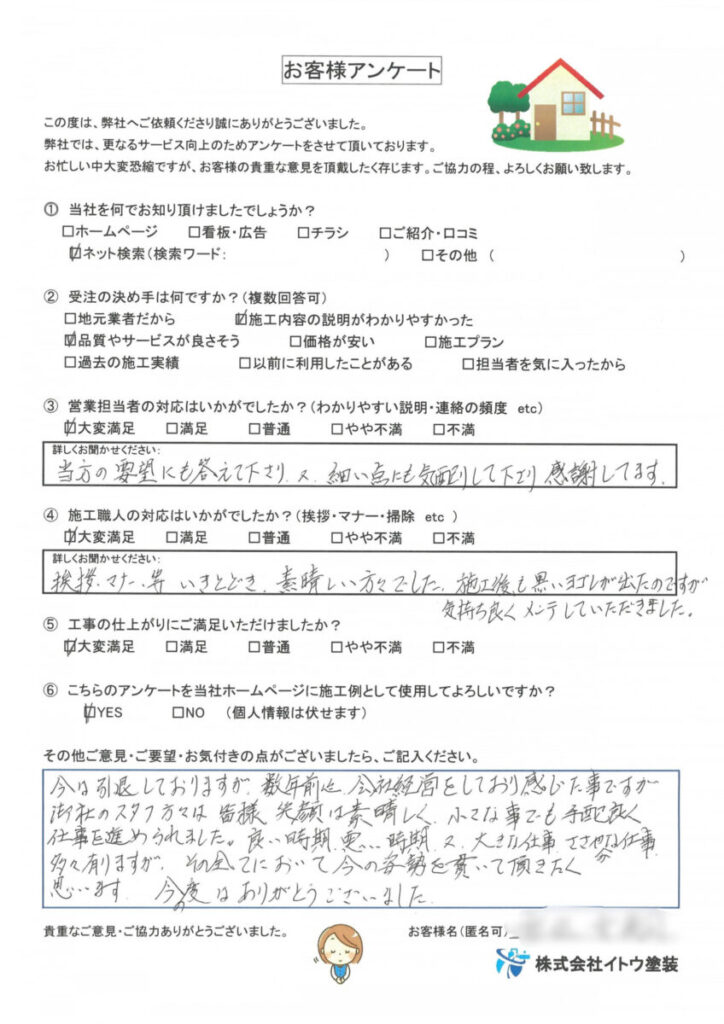 お客様アンケート
この度は、弊社へご依頼くださり誠にありがとうございました。
弊社では、更なるサービス向上のためアンケートをさせて頂いております。
お忙しい中大変恐縮ですが、お客様の貴重な意見を頂戴したく存じます。ご協力の程、よろしくお願い致します。
① 当社を何でお知り頂けましたでしょうか？
□ホームページ □看板・広告 □チラシ □ご紹介・口コミ
☑ネット検索（検索ワード： ） □その他 （ ）
② 受注の決め手は何ですか？（複数回答可）
□地元業者だから ☑施工内容の説明がわかりやすかった
☑品質やサービスが良さそう □価格が安い □施工プラン
□過去の施工実績 □以前に利用したことがある □担当者を気に入ったから
③ 営業担当者の対応はいかがでしたか？（わかりやすい説明・連絡の頻度 etc）
☑大変満足 □満足 □普通 □やや不満 □不満
詳しくお聞かせください：
当方の要望にも答えて下さり、又、細い点にも気配りして下さり 感謝してます。
④ 施工職人の対応はいかがでしたか？（挨拶・マナー・掃除 etc ）
☑大変満足 □満足 □普通 □やや不満 □不満
詳しくお聞かせください：
挨拶、マナー、等 いきとどき、素晴しい方々でした。施工後も黒いヨゴレが出たのですが
気持ち良く メンテしていただきました。
⑤ 工事の仕上がりにご満足いただけましたか？
☑大変満足 □満足 □普通 □やや不満 □不満
⑥ こちらのアンケートを当社ホームページに施工例として使用してよろしいですか？
☑YES □NO （個人情報は伏せます）
その他ご意見・ご要望・お気付きの点がございましたら、ご記入ください。
今は引退しておりますが、数年前迄 会社経営をしており感じた事ですが
御社のスタフ方々は 皆様 笑顔は素晴しく、小さな事でも手配良く
仕事を進められました。良い時期、悪い時期、又、大きな仕事、仕事
多々有りますが、その全てにおいて今の姿勢を貫いて頂きたく
思います。 今の度はありがとうございました。
貴重なご意見・ご協力ありがとうございました。
お客様名（匿名可）
株式会社イトウ塗装